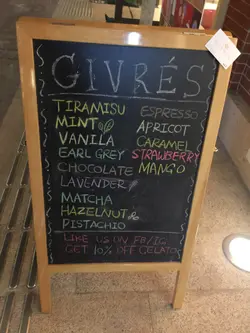 GIVRÉS
TIRAMISU
MINT
VANILA
EARL GREY
CHOCOLATE
LAVENDER
MATCHA
HAZELNUT
PISTACHIO
ESPRESSO
APRICOT
CARAMEL
STRAWBERRY
MANGO
LIKE US ON FB/IG
GET 10% OFF GELATO